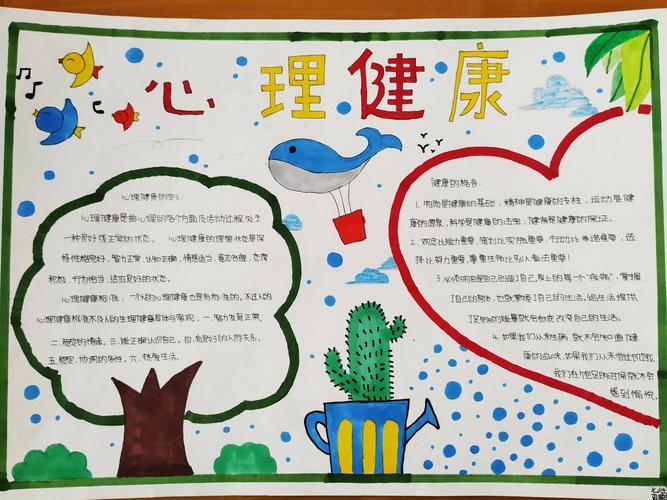 心理健康
心理健康的定义:
心理健康是指心理的各个方面及活动过程处于
一种良好或正常的状态。心理健康的理想状态是保
持性格完好、智力正常、认知正确、情感适当、意志合理、态度
积极、行为恰当、适应良好的状态。
心理健康标准:一个人的心理健康也是有标准的。不过人的
心理健康标准不及人的生理健康具体与客观。一.智力发育正常.
二.稳定的情绪。三.能正确认识自己。四.有良好的人际关系。
五.稳定、协调的个性。六.热爱生活。
健康的格言:
1.物质是健康的基础,精神是健康的支柱,运动是健
康的源泉,科学是健康的法宝,健商是健康的保证。
2.观念比能力重要,策划比实施重要,行动比承诺重要,选
择比努力重要,尊重生物比别人看法重要。
3.必须明白是自己创造了自己身上的每一个"疾病",掌握
了自己的身体,也就掌握了自己的生活。给生活提供
了足够的能量就会你在改变自己的生活。
4.如果我们从未生病,就不会知道健
康的滋味,如果我们从未尝过饥饿,
我们在饱足的时候就不会
感到愉悦.